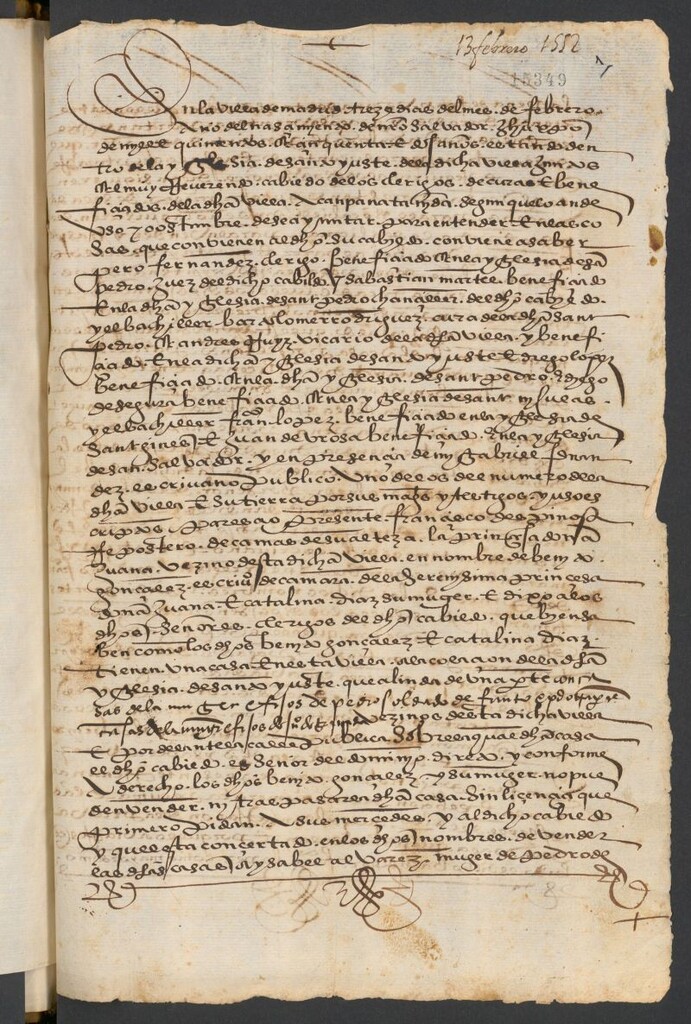 13 febrero 1552
15349
En la villa de madrid treze dias del mes de febrero
Año del nasçimiento de nro Salvador Jhuxpo
de myll e quinientos e çinquenta e dos años estando den
tro de la yglesia de santo yuste de la dicha villa juntos
el muy Reverendo cabildo de los clerigos de curas e bene
fiçiados de la dha villa a canpana tañyda segun que lo an de
uso y costunbre de se ayuntar para entender en las co
sas que convienen al dho su cabildo conviene a saber
pero fernandez clerigo benefiçiado en la yglesia de san
pedro Juez del dicho cabildo y sabastian martel benefiçiado
en la dha yglesia de sant pedro chançiller del dho cabildo
y el bachiller bartolome rrodriguez cura de la dha de sant
pedro e andres Ruyz vicario de la dha villa y benefi
çiado en la dicha yglesia de santo yuste e diego lopez
benefiçiado en la dha yglesia de sant pedro e diego
de segura benefiçiado en la yglesia de sant nycolas
y el bachiller franco lopez benefiçiado en la yglesia de
sant gines e Juan de benefiçiado en la yglesia
de san salvador y en presençia de my gabriel fernan
dez escrivano publico uno de los del numero de la
dha villa e su tierra por sus magdes y testigos yuso es
criptos pareçio presente françisco despinosa
Repostero de camas de su alteza la prinçesa doña
Juana vezino desta dicha villa en nombre de benyto
gonçalez escrivo de camara de la serenisima prinçesa
doña Juana e catalina diaz su muger e dixo a los
dhos señores clerigos del dho cabildo que byen sa
ben como los dhos benyto gonçalez e catalina diaz
tienen una casa en esta villa a la colaçion de la dha
yglesia de santo yuste que alinda de una pte con ca
sas de la muger e fijos de pedro soldado de
casas de la muger e fijos de vezinos desta dicha villa
e por delante la calle publica sobre la qual dha casa
el dho cabildo es señor del dominyo direto y conforme
a derecho los dhos benyto gonçalez y su muger no pue
den vender ny traspasar la dha casa sin liçençia que
primero pidan a sus mercedes y al dicho cabildo
y que esta conçertado en los dhos nombres de vender
las dhas casas a ysabel alvarez muger de pedro de